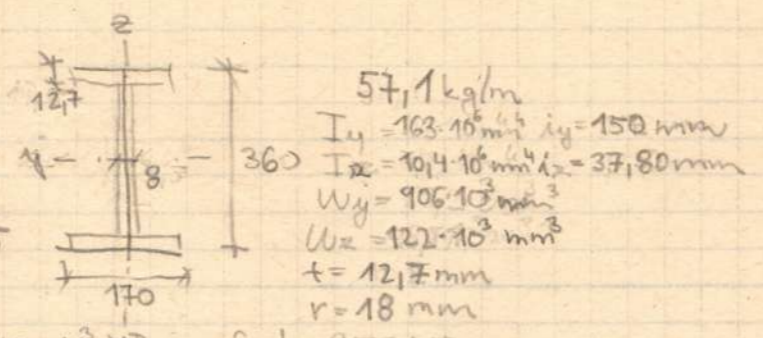 z
12,7
y
8
360
170
57,1 kg/m
Iy = 163·10⁶ mm⁴ iy = 150 mm
Iz = 10,4·10⁶ mm⁴ iz = 37,80 mm
Wy = 906·10³ mm³
Wz = 122·10³ mm³
t = 12,7 mm
r = 18 mm